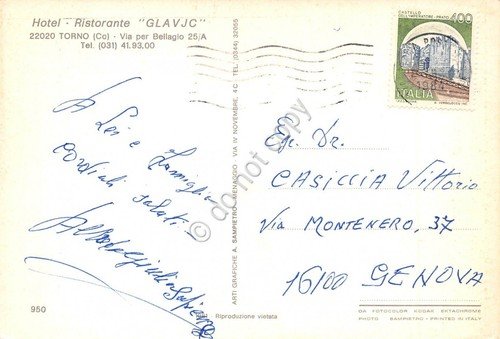 Hotel · Ristorante "GLAVJC"
22020 TORNO (Co) · Via per Bellagio 25/A
Tel. (031) 41.93.00
A Lei e famiglia
cordiali saluti
950
Riproduzione vietata
ARTI GRAFICHE A. SAMPIETRO · MENAGGIO · VIA IV NOVEMBRE, 4C · Tel. (0344) 32055
CASTELLO
DELL'IMPERATORE · PRATO
400
ITALIA
Eg. Dr.
CASICCIA Vittorio
Via MONTENERO, 37
16100 GENOVA
DA FOTOCOLOR KODAK EKTACHROME
PHOTO SAMPIETRO - PRINTED IN ITALY
© do not copy